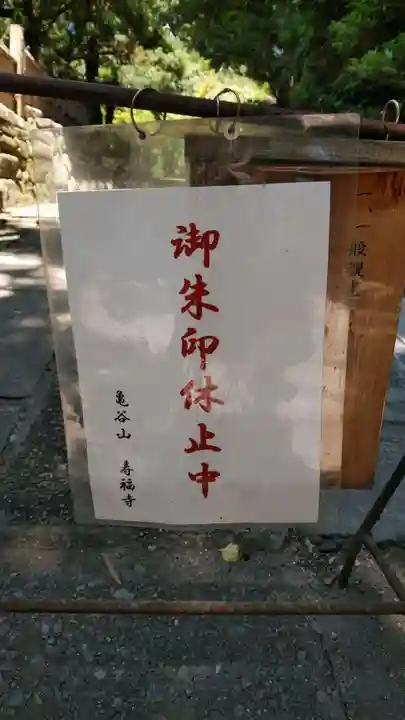 一、一般観
御朱印休止中
亀谷山 寿福寺